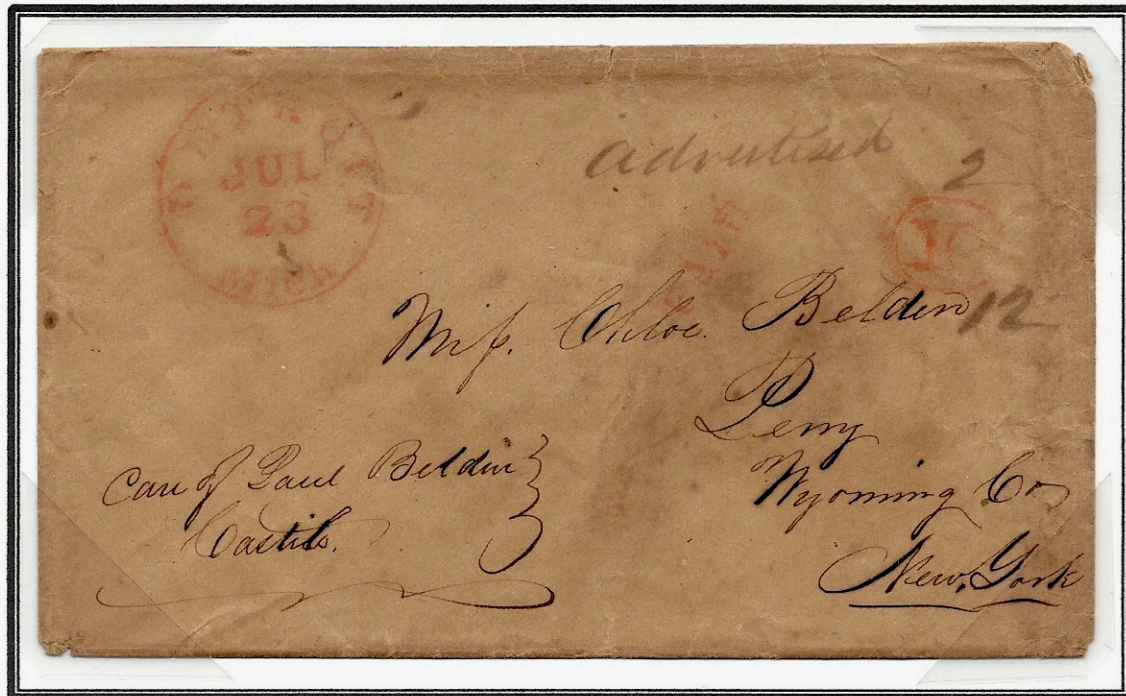 DETROIT
JUL
23
MICH
advertised
2
10
Miſs. Chloe. Belden 12
Perry
Wyoming Co
New, York
Care of Paul Belden
Castile.